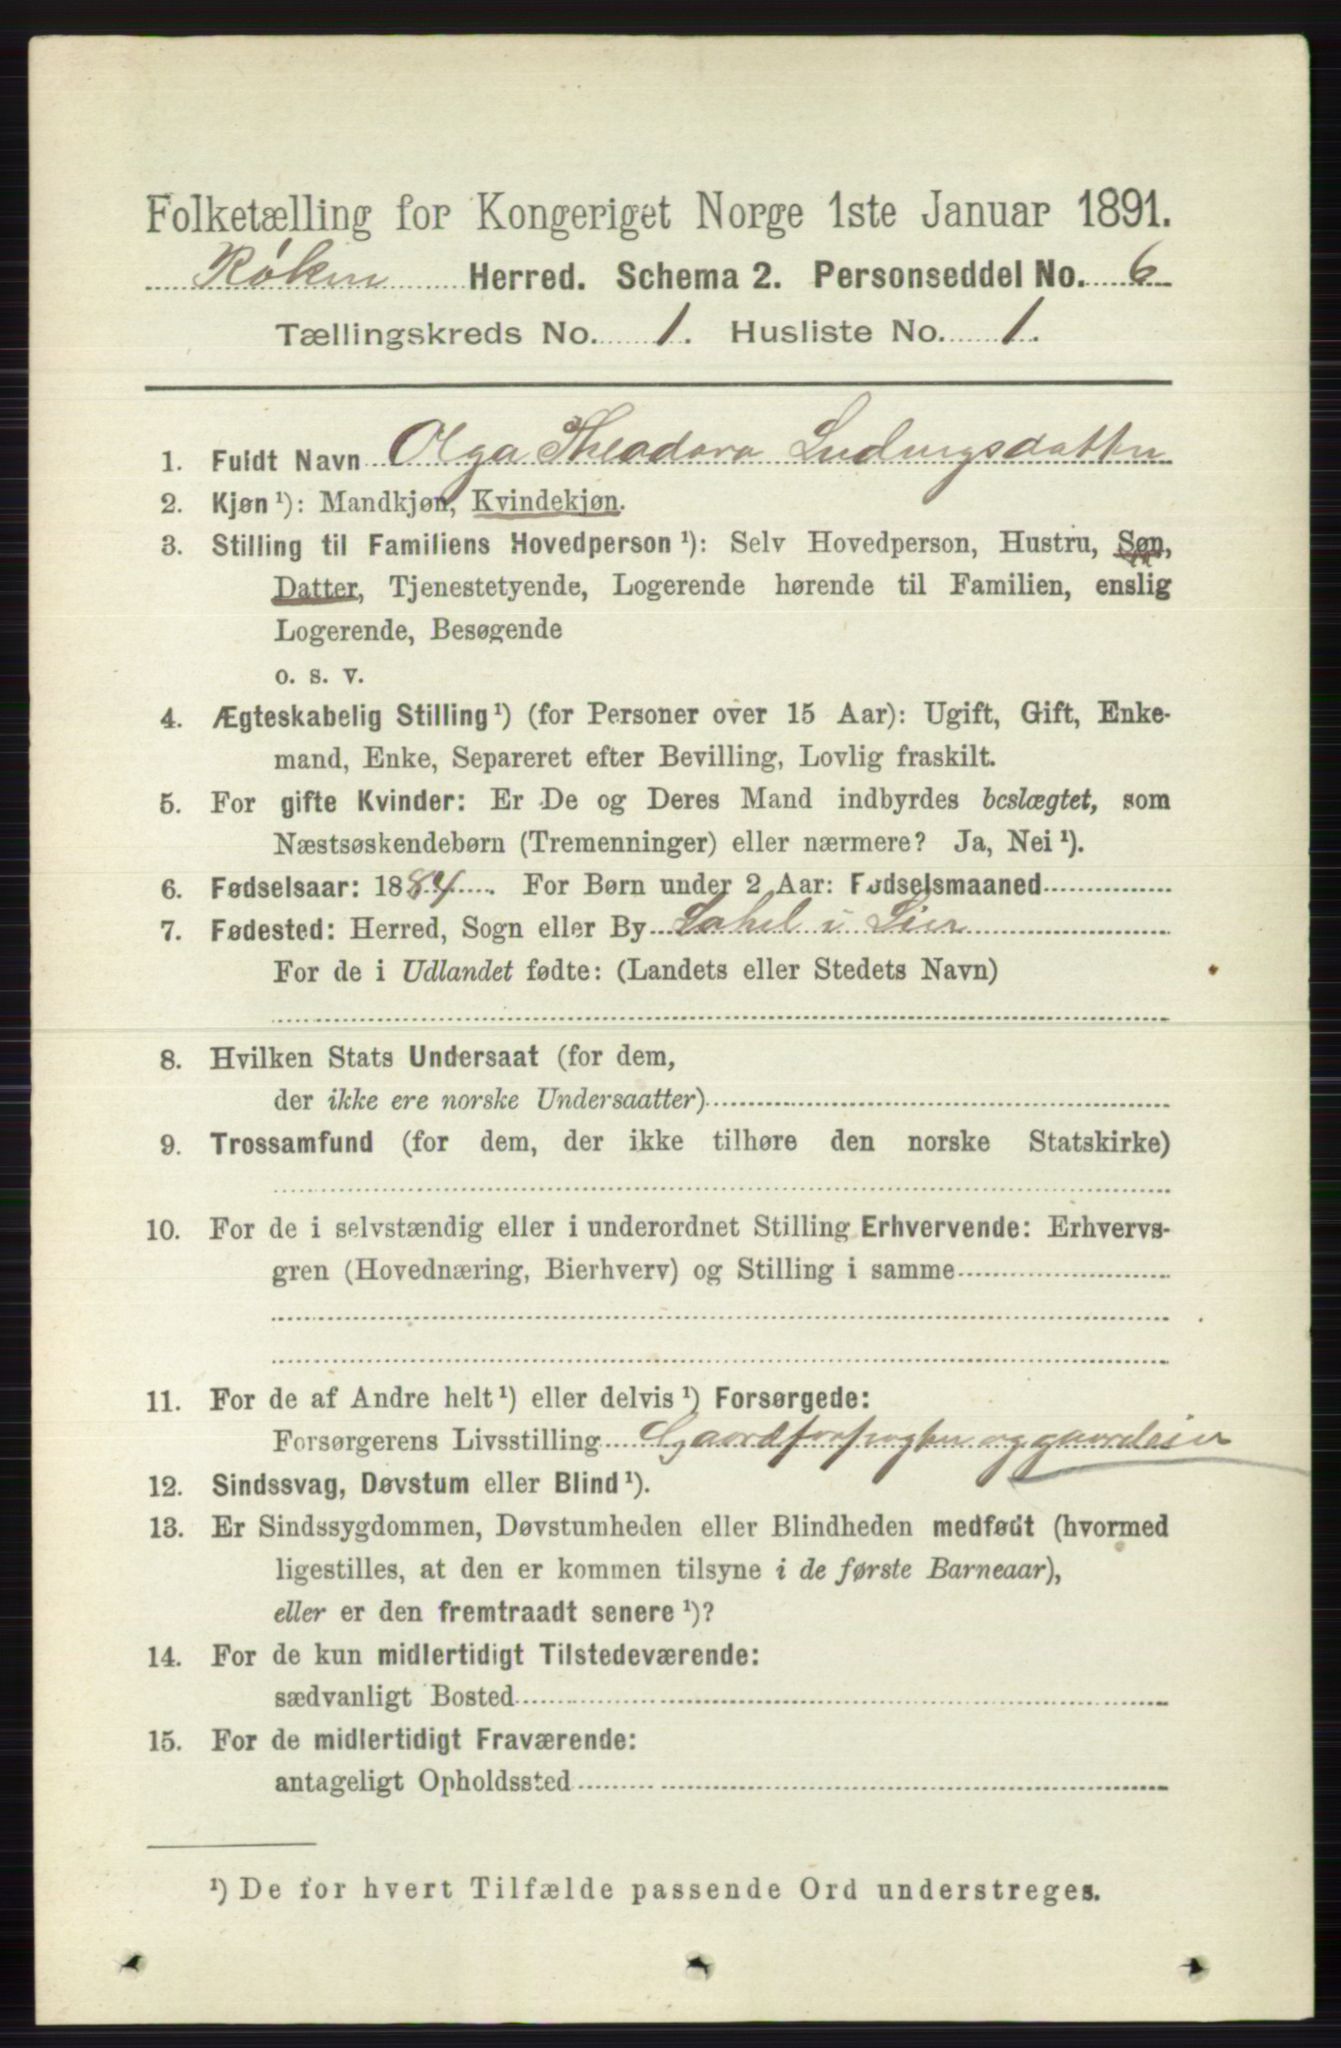 Folketælling for Kongeriget Norge 1ste Januar 1891.
Røken Herred. Schema 2. Personseddel No. 6
Tællingskreds No. 1. Husliste No. 1.
1. Fuldt Navn Olga Theodora Ludvigsdatter
2. Kjøn ¹): Mandkjøn, Kvindekjøn.
3. Stilling til Familiens Hovedperson ¹): Selv Hovedperson, Hustru, Søn,
Datter, Tjenestetyende, Logerende hørende til Familien, enslig
Logerende, Besøgende
o. s. v.
4. Ægteskabelig Stilling ¹) (for Personer over 15 Aar): Ugift, Gift, Enke-
mand, Enke, Separeret efter Bevilling, Lovlig fraskilt.
5. For gifte Kvinder: Er De og Deres Mand indbyrdes beslægtet, som
Næstsøskendebørn (Tremenninger) eller nærmere? Ja, Nei ¹).
6. Fødselsaar: 1884. For Børn under 2 Aar: Fødselsmaaned
7. Fødested: Herred, Sogn eller By i Lier
For de i Udlandet fødte: (Landets eller Stedets Navn)
8. Hvilken Stats Undersaat (for dem,
der ikke ere norske Undersaatter)
9. Trossamfund (for dem, der ikke tilhøre den norske Statskirke)
10. For de i selvstændig eller i underordnet Stilling Erhvervende: Erhvervs-
gren (Hovednæring, Bierhverv) og Stilling i samme
11. For de af Andre helt ¹) eller delvis ¹) Forsørgede:
Forsørgerens Livsstilling Gaardforpagter og gaardeier
12. Sindssvag, Døvstum eller Blind ¹).
13. Er Sindssygdommen, Døvstumheden eller Blindheden medfødt (hvormed
ligestilles, at den er kommen tilsyne i de første Barneaar),
eller er den fremtraadt senere ¹)?
14. For de kun midlertidigt Tilstedeværende:
sædvanligt Bosted
15. For de midlertidigt Fraværende:
antageligt Opholdssted
¹) De for hvert Tilfælde passende Ord understreges.